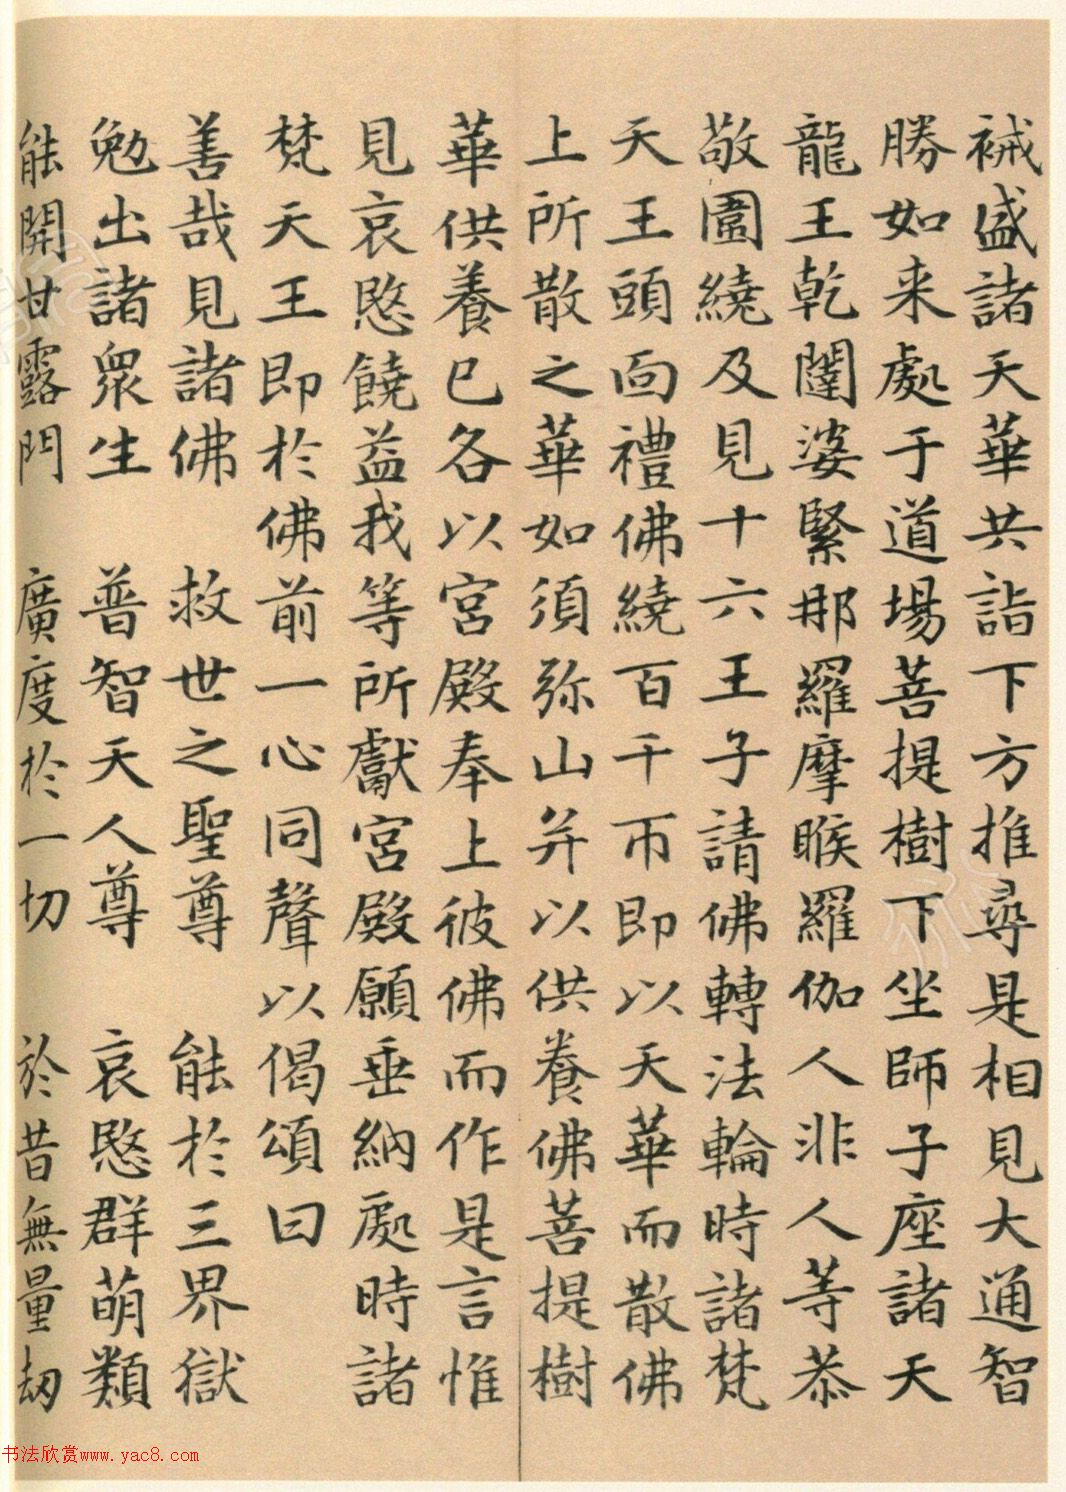 裓盛諸天華共詣下方推尋是相見大通智
勝如来處于道場菩提樹下坐師子座諸天
龍王乾闥婆緊那羅摩睺羅伽人非人等恭
敬圍繞及見十六王子請佛轉法輪時諸梵
天王頭面禮佛繞百千帀即以天華而散佛
上所散之華如須弥山并以供養佛菩提樹
華供養已各以宮殿奉上彼佛而作是言惟
見哀愍饒益我等所獻宮殿願垂納處時諸
梵天王即於佛前一心同聲以偈頌曰
善哉見諸佛 救世之聖尊 能於三界獄
勉出諸眾生 普智天人尊 哀愍群萌類
能開甘露門 廣度於一切 於昔無量劫
书法欣赏www.yac8.com